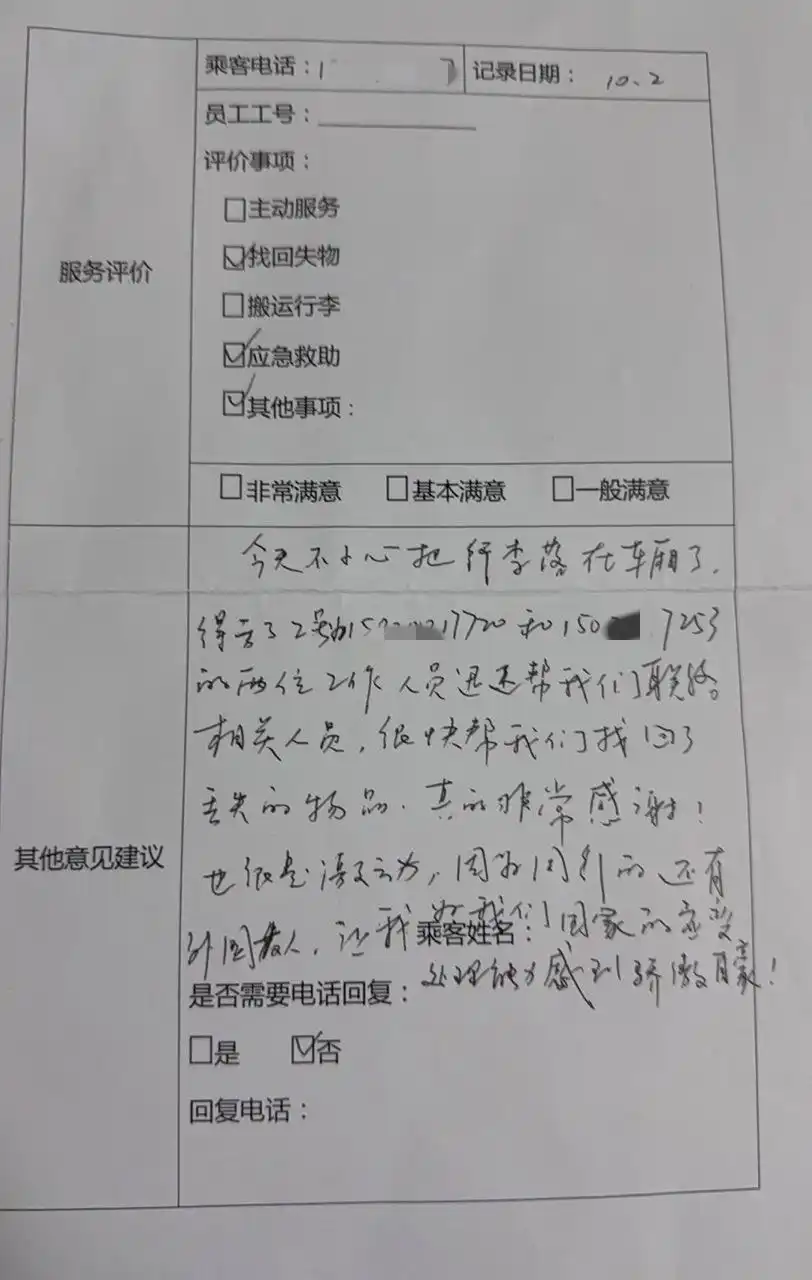 乘客电话：1
记录日期：10.2
员工工号：
评价事项：
□主动服务
☑找回失物
服务评价
□搬运行李
☑应急救助
☑其他事项：
□非常满意 □基本满意 □一般满意
今天不小心把行李落在车厢了.
得云了工号为15 17720和150 7253
的两位工作人员迅速帮我们联络
相关人员，很快帮我们找回了
丢失的物品.真的非常感谢！
其他意见建议
也很是激动，因为同行的还有
外国友人，让我对我们国家的应变
乘客姓名：
处理能力感到骄傲自豪！
是否需要电话回复：
□是 ☑否
回复电话：